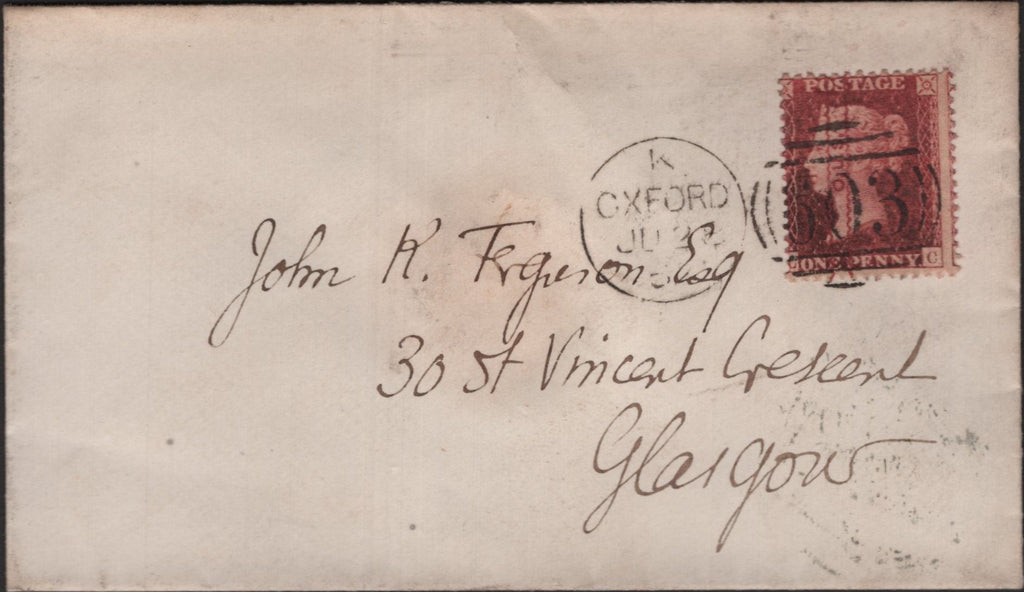 POSTAGE
K
OXFORD
JU
603
ONE PENNY C
John R. Ferguson Esq
30 St Vincent Crescent
Glasgow